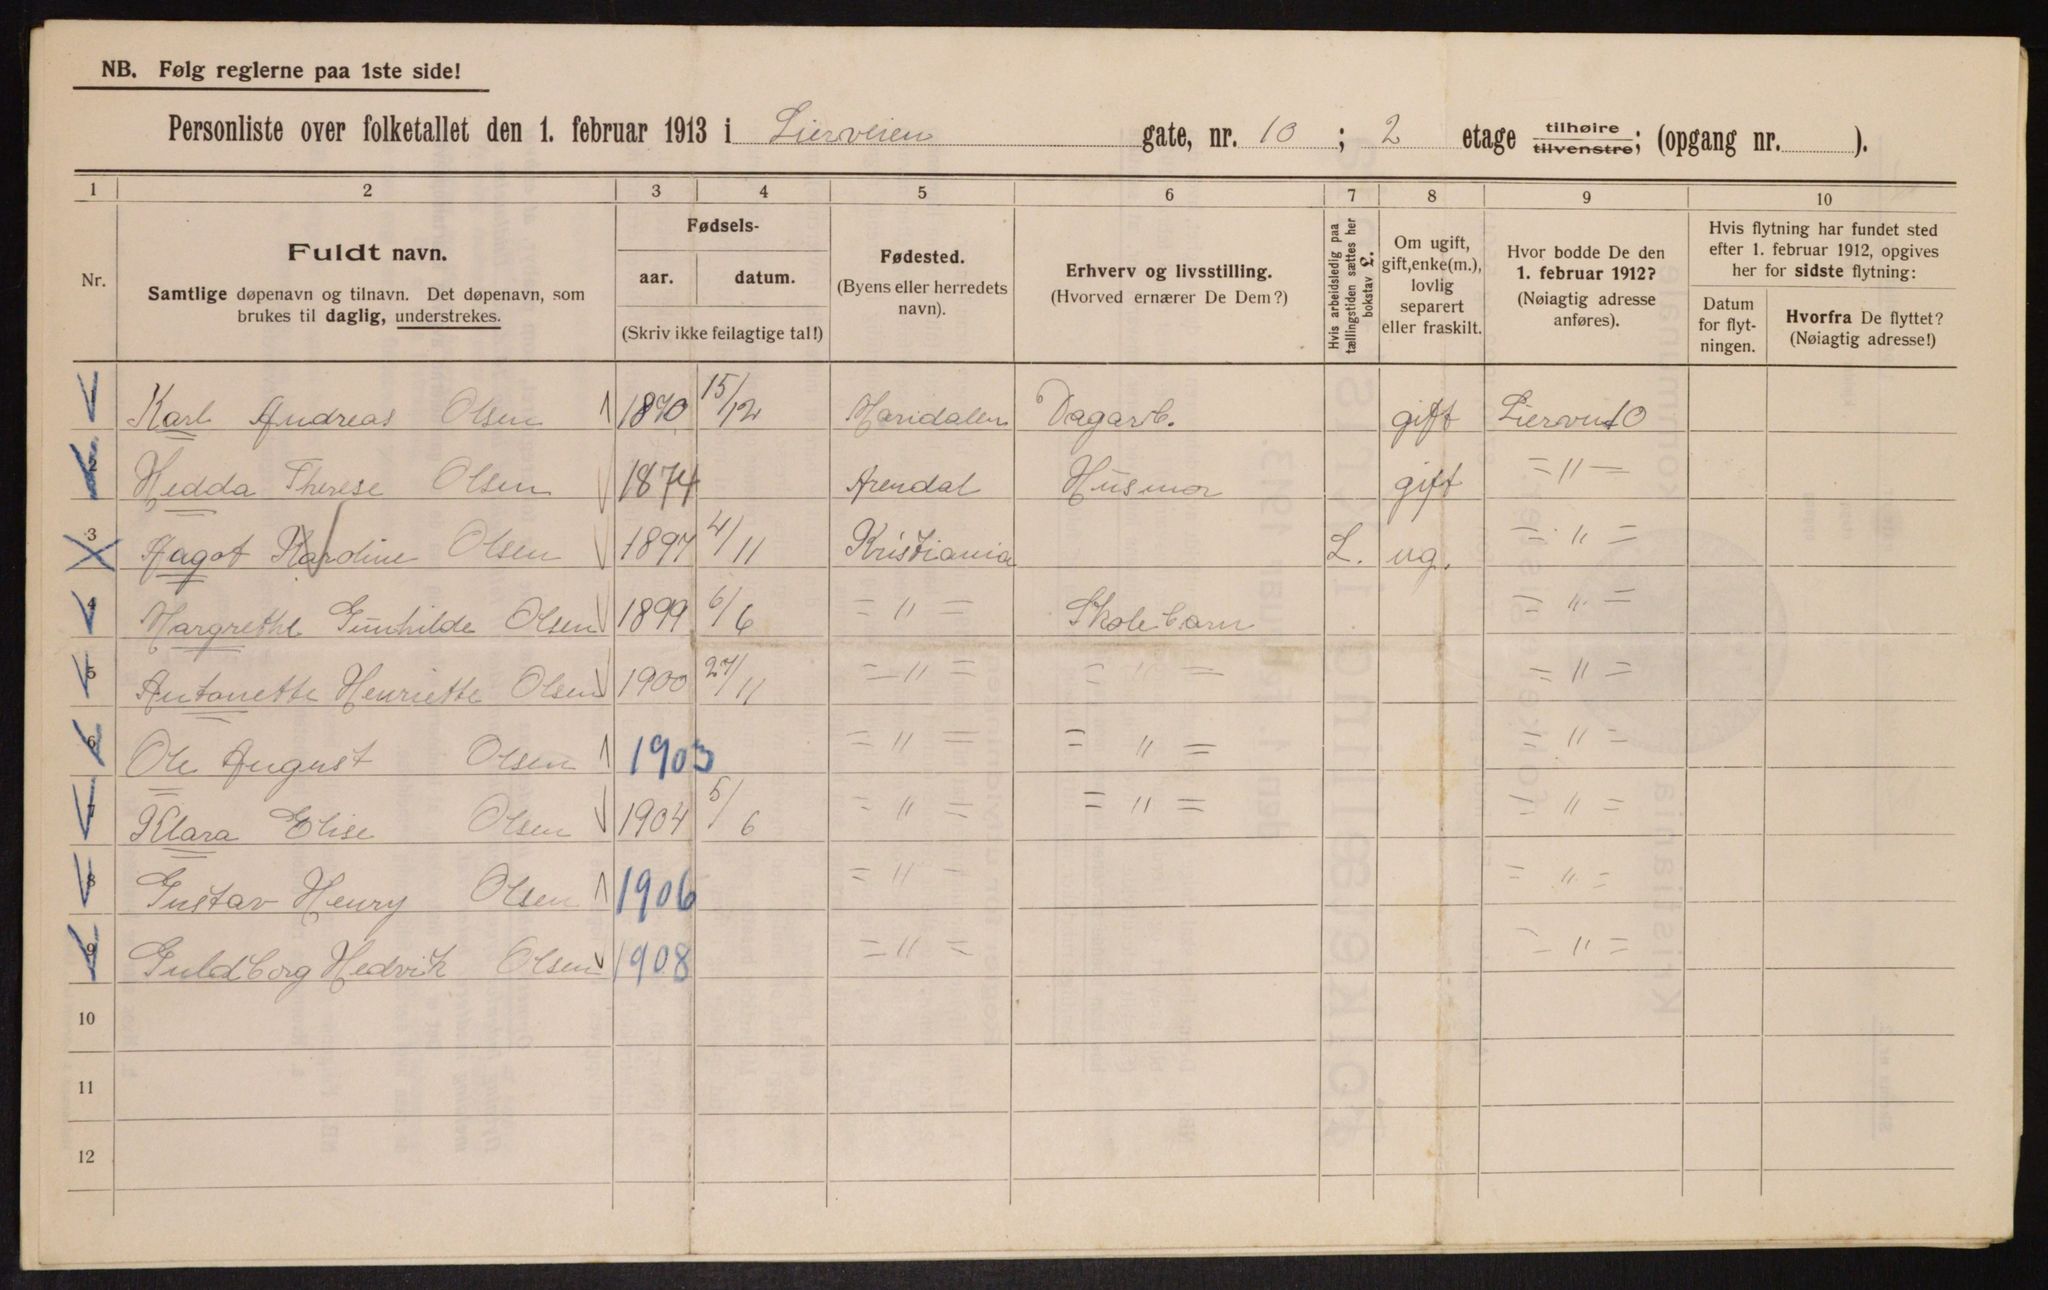 NB. Følg reglerne paa 1ste side!
Personliste over folketallet den 1. februar 1913 i Lierveien gate, nr. 10 ; 2 etage tilhøire tilvenstre; (opgang nr. ).
1 2 3 4 5 6 7 8 9 10
Nr.
Fuldt navn.
Samtlige døpenavn og tilnavn. Det døpenavn, som
brukes til daglig, understrekes.
Fødsels-
aar. datum.
(Skriv ikke feilagtige tal!)
Fødested.
(Byens eller herredets
navn).
Erhverv og livsstilling.
(Hvorved ernærer De Dem?)
Hvis arbeidsledig paa
tællingstiden sættes her
bokstav L.
Om ugift,
gift, enke(m.),
lovlig
separert
eller fraskilt.
Hvor bodde De den
1. februar 1912?
(Nøiagtig adresse
anføres).
Hvis flytning har fundet sted
efter 1. februar 1912, opgives
her for sidste flytning:
Datum
for flyt-
ningen.
Hvorfra De flyttet?
(Nøiagtig adresse!)
Karl Andreas Olsen 1870 15/12 Maridalen Dagarb. gift
2 Hedda Therese Olsen 1874 Arendal Husmor gift = " =
3 Aagot Kardine Olsen 1897 4/11 Kristiania L. ug. = " =
4 Margrethe Gunhilde Olsen 1899 6/6 = " = Skolebarn = " =
5 Antonette Henriette Olsen 1900 27/11 = " = = " = = " =
6 Ole August Olsen 1903 = " = = " = = " =
7 Klara Elise Olsen 1904 5/6 = " = = " = = " =
8 Gustav Henry Olsen 1906 = " = = " =
9 Guldborg Hedvik Olsen 1908 = " = = " =
10
11
12